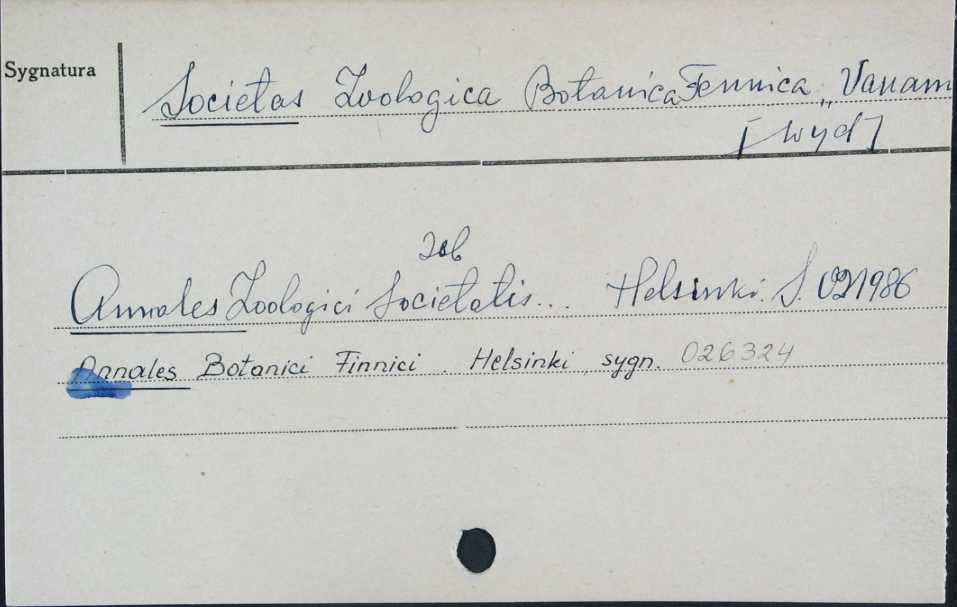 Sygnatura
Societas Zoologica Botanica Fennica „Vanam
[wyd]
Zob
Annales Zoologici Societatis... Helsinki. S. 021986
Annales Botanici Finnici. Helsinki, sygn. 026324